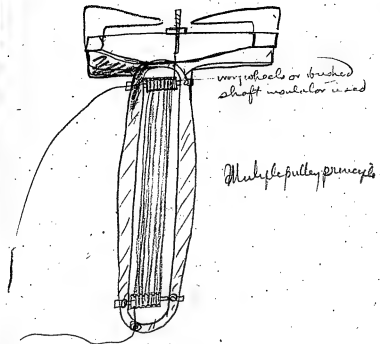 wheels or bushed
shaft insulator is used
Multiple pulley principle